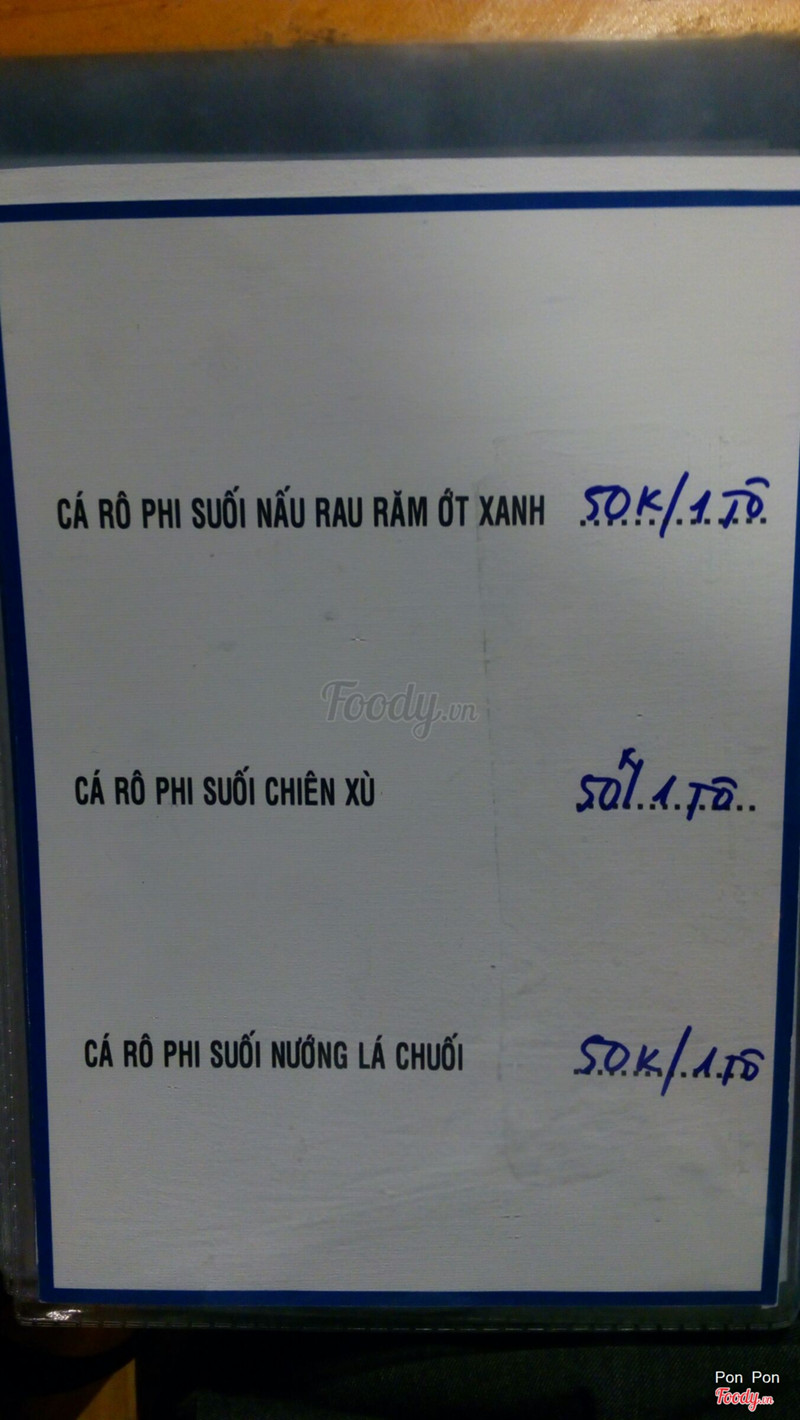 CÁ RÔ PHI SUỐI NẤU RAU RĂM ỚT XANH 50K/1 TÔ
Foody.vn
CÁ RÔ PHI SUỐI CHIÊN XÙ 50K/1 TÔ
CÁ RÔ PHI SUỐI NƯỚNG LÁ CHUỐI 50K/1 TÔ
Pon Pon
Foody.vn